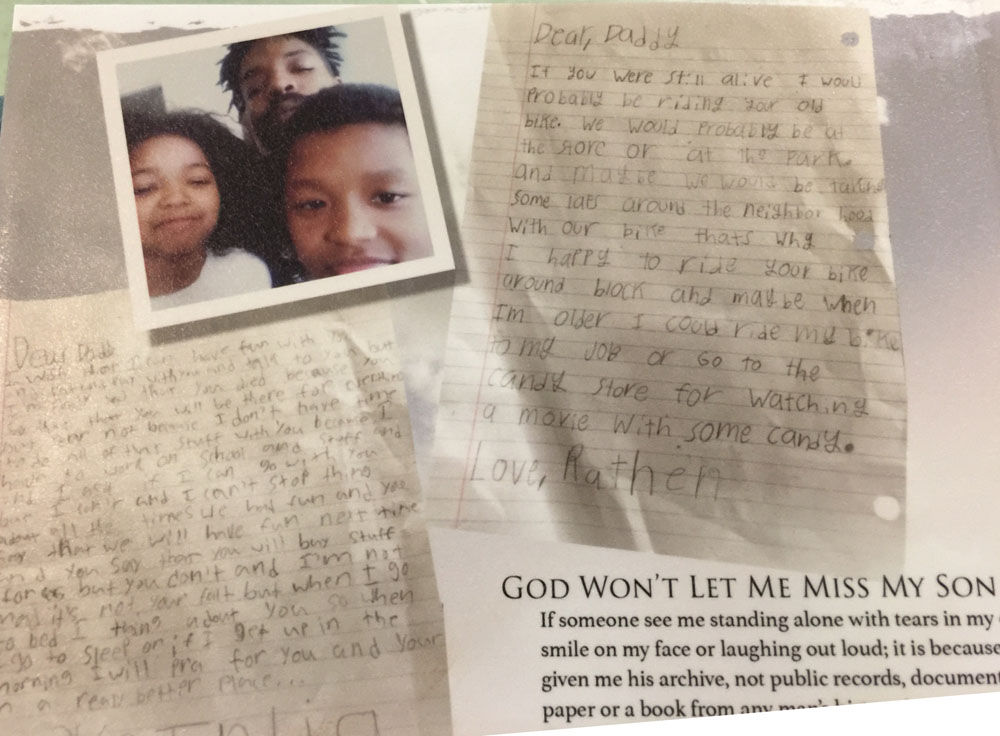 Dear, Daddy
If you were still alive I would
Probably be riding your old
bike. We would Probably be at
the store or at the Park
and maybe we would be taking
some laps around the neighbor hood
With our bike thats why
I happy to ride your bike
around block and maybe when
I'm older I could ride my bike
to my JOB or Go to the
candy store for watching
a movie with some candy.
Love, Rathen
Dear Dad
have fun with you
with you and talk to you but
you died because you
that you will be there for
not because I don't have time
to do all of that stuff with you because I
have to work on school and stuff and
and I ask if I can go with you
but I can't stop thing
about all the times we had fun and you
say that we will have fun next time
and you say that you will buy stuff
for but you don't and I'm not
mad it's not your falt but when I go
to bed I thing about you so when
go to sleep or if I get up in the
morning I will pra for you and your
n a realy better place...
GOD WON'T LET ME MISS MY SON
If someone see me standing alone with tears in my
smile on my face or laughing out loud; it is because
given me his archive, not public records, document
paper or a book from any man's